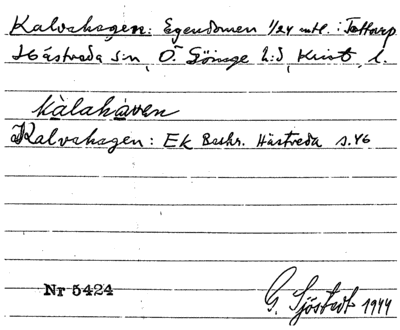 Kalvahagen: Egendomen 1/24 mtl. i Tottarp
Hästveda s:n, Ö. Göinge h:d, Krist. l.
kàlahàven
Kalvahagen: Ek Beskr. Hästveda s.46
Nr 5424
G. Sjöstedt 1944